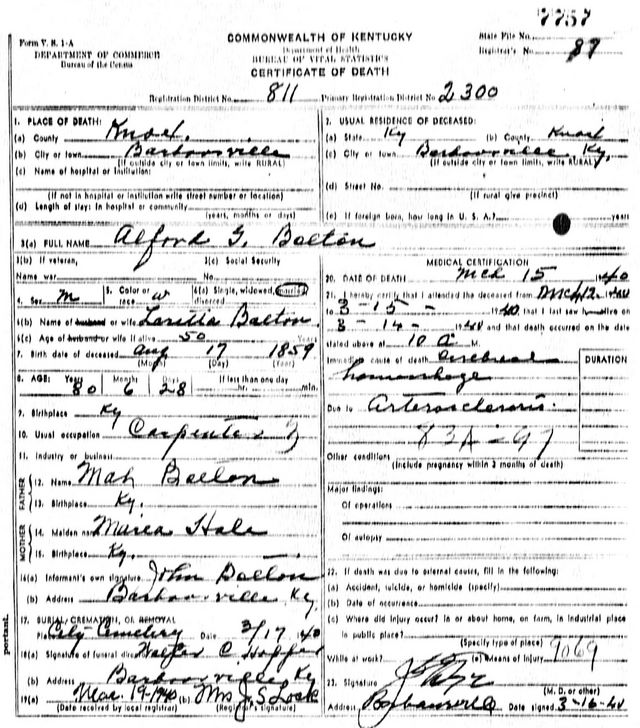 7757
Form V. S. 1-A
DEPARTMENT OF COMMERCE
Bureau of the Census
COMMONWEALTH OF KENTUCKY
Department of Health
BUREAU OF VITAL STATISTICS
CERTIFICATE OF DEATH
State File No.
Registrar's No. 87
Registration District No. 811 Primary Registration District No. 2300
1. PLACE OF DEATH:
(a) County Knox
(b) City or town Barbourville
(If outside city or town limits, write RURAL)
(c) Name of hospital or institution:
(If not in hospital or institution write street number or location)
(d) Length of stay: in hospital or community
(years, months or days)
2. USUAL RESIDENCE OF DECEASED:
(a) State Ky (b) County Knox
(c) City or town Barbourville, Ky.
(If outside city or town limits, write RURAL)
(d) Street No.
(If rural give precinct)
(e) If foreign born, how long in U. S. A.? years
3(a) FULL NAME Alford G. Bolton
3(b) If veteran,
Name war
3(c) Social Security
No.
4. Sex m
5. Color or race w
6(a) Single, widowed, married
divorced
6(b) Name of husband or wife Loretta Bolton
6(c) Age of husband or wife if alive 50 years
7. Birth date of deceased Aug 17 1859
(Month) (Day) (Year)
8. AGE: Years Months Days If less than one day
80 6 28 hr. min.
9. Birthplace Ky
10. Usual occupation Carpenter
11. Industry or business
FATHER
12. Name Bolton
13. Birthplace Ky.
MOTHER
14. Maiden name Hale
15. Birthplace Ky.
16(a) Informant's own signature John Bolton
(b) Address Barbourville Ky
17. BURIAL, CREMATION, OR REMOVAL
Place City Cemetery Date 3/17 40
18(a) Signature of funeral director Walter C Hopper
(b) Address Barbourville Ky
19(a) Mar. 19-1940 (b) Mrs J. S. Lock
(Date received by local registrar) (Registrar's signature)
MEDICAL CERTIFICATION
20. DATE OF DEATH Mch 15 1940
21. I hereby certify that I attended the deceased from Mch 12 1940
to 3-15- 1940, that I last saw h alive on
3-14- 1940 and that death occurred on the date
stated above at 10 a M.
Immediate cause of death Cerebral
homorrhage
DURATION
Due to Arterosclerosis.
83A-97
Other conditions
(Include pregnancy within 3 months of death)
Major findings:
Of operations
Of autopsy
22. If death was due to external causes, fill in the following:
(a) Accident, suicide, or homicide (specify)
(b) Date of occurrence
(c) Where did injury occur? In or about home, on farm, in industrial place
in public place?
(Specify type of place)
While at work? (e) Means of injury 9069
23. Signature
(M. D. or other)
Address Barbourville Date signed 3-16-40
portant.